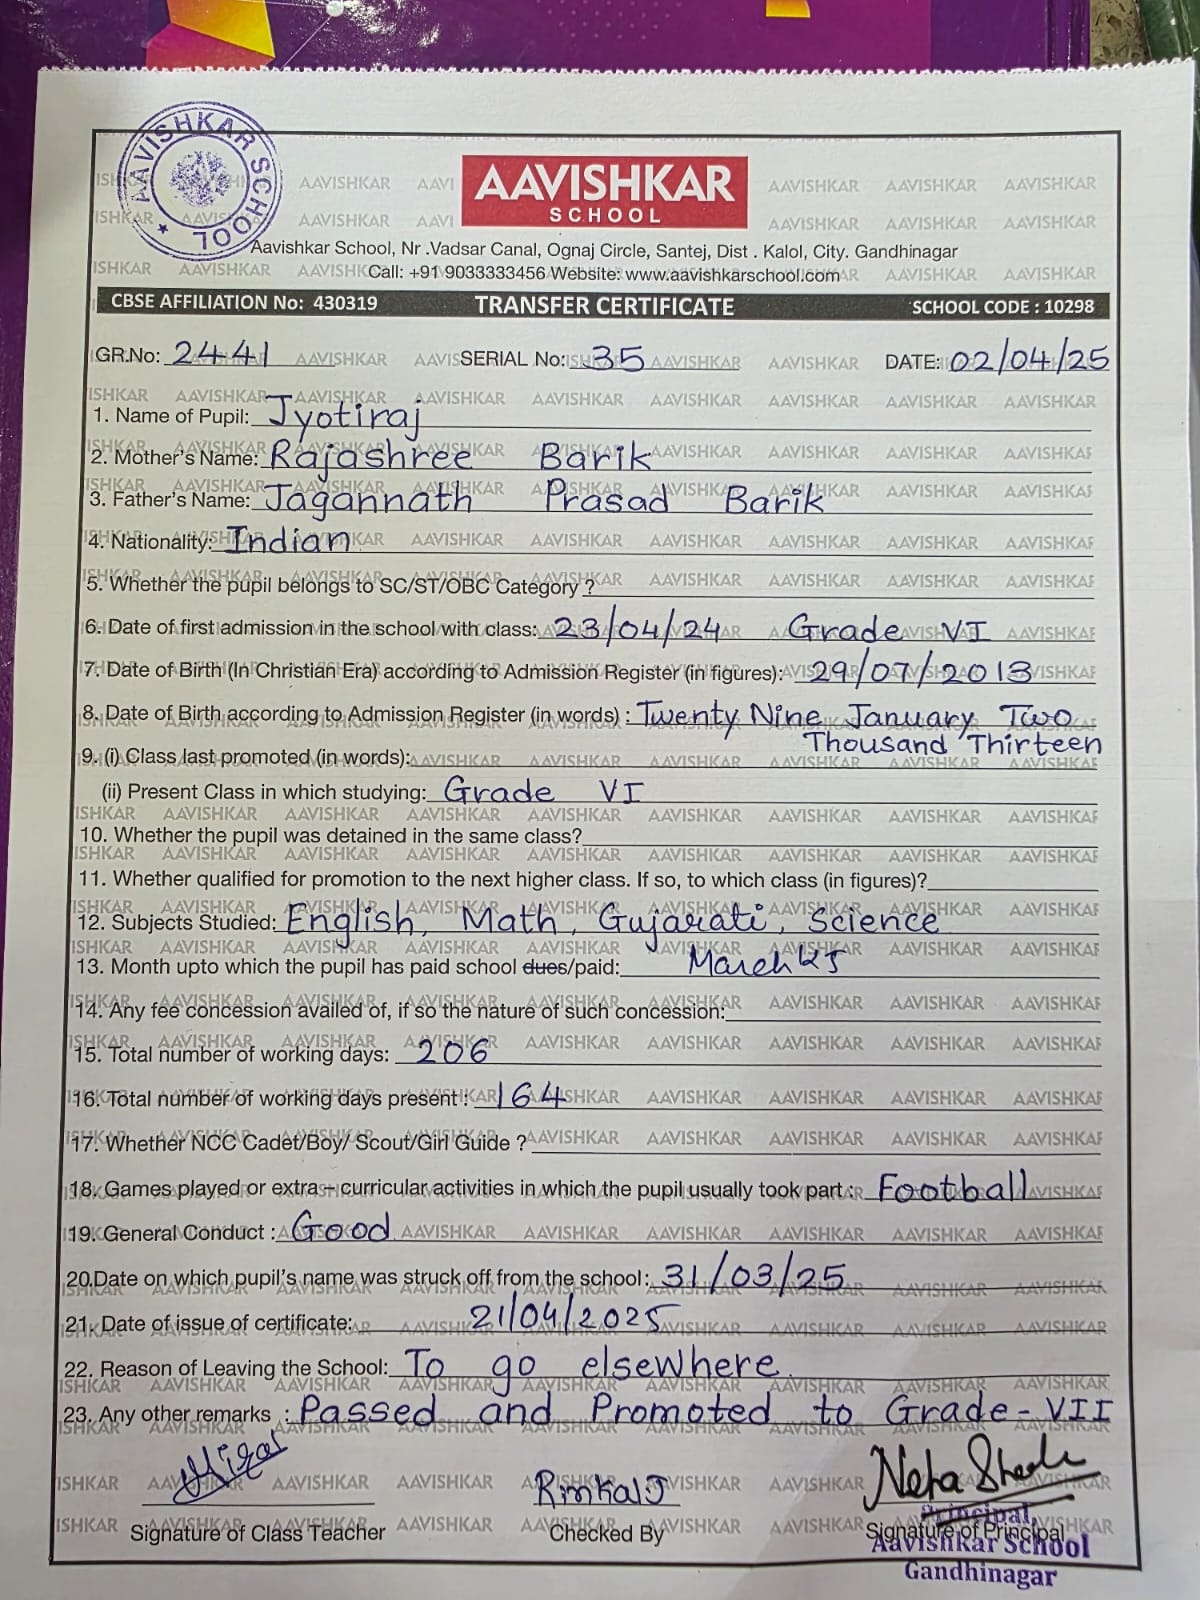 AAVISHKAR SCHOOL
AAVISHKAR
SCHOOL
Aavishkar School, Nr .Vadsar Canal, Ognaj Circle, Santej, Dist . Kalol, City. Gandhinagar
Call: +91 9033333456 Website: www.aavishkarschool.com
CBSE AFFILIATION No: 430319 TRANSFER CERTIFICATE SCHOOL CODE : 10298
GR.No: 2441 SERIAL No: 35 DATE: 02/04/25
1. Name of Pupil: Jyotiraj
2. Mother's Name: Rajashree Barik
3. Father's Name: Jagannath Prasad Barik
4. Nationality: Indian
5. Whether the pupil belongs to SC/ST/OBC Category ?
6. Date of first admission in the school with class: 23/04/24 Grade VI
7. Date of Birth (In Christian Era) according to Admission Register (in figures): 29/07/2013
8. Date of Birth according to Admission Register (in words) : Twenty Nine January Two
Thousand Thirteen
9. (i) Class last promoted (in words):
(ii) Present Class in which studying: Grade VI
10. Whether the pupil was detained in the same class?
11. Whether qualified for promotion to the next higher class. If so, to which class (in figures)?
12. Subjects Studied: English, Math, Gujarati, Science
13. Month upto which the pupil has paid school dues/paid: March
14. Any fee concession availed of, if so the nature of such concession:
15. Total number of working days: 206
16. Total number of working days present : 164
17. Whether NCC Cadet/Boy/ Scout/Girl Guide ?
18. Games played or extra – curricular activities in which the pupil usually took part : Football
19. General Conduct : Good
20.Date on which pupil's name was struck off from the school: 31/03/25
21. Date of issue of certificate: 21/04/2025
22. Reason of Leaving the School: To go elsewhere.
23. Any other remarks : Passed and Promoted to Grade - VII
Rinkal J Neha
Signature of Class Teacher Checked By Signature of Principal
Principal,
Aavishkar School
Gandhinagar